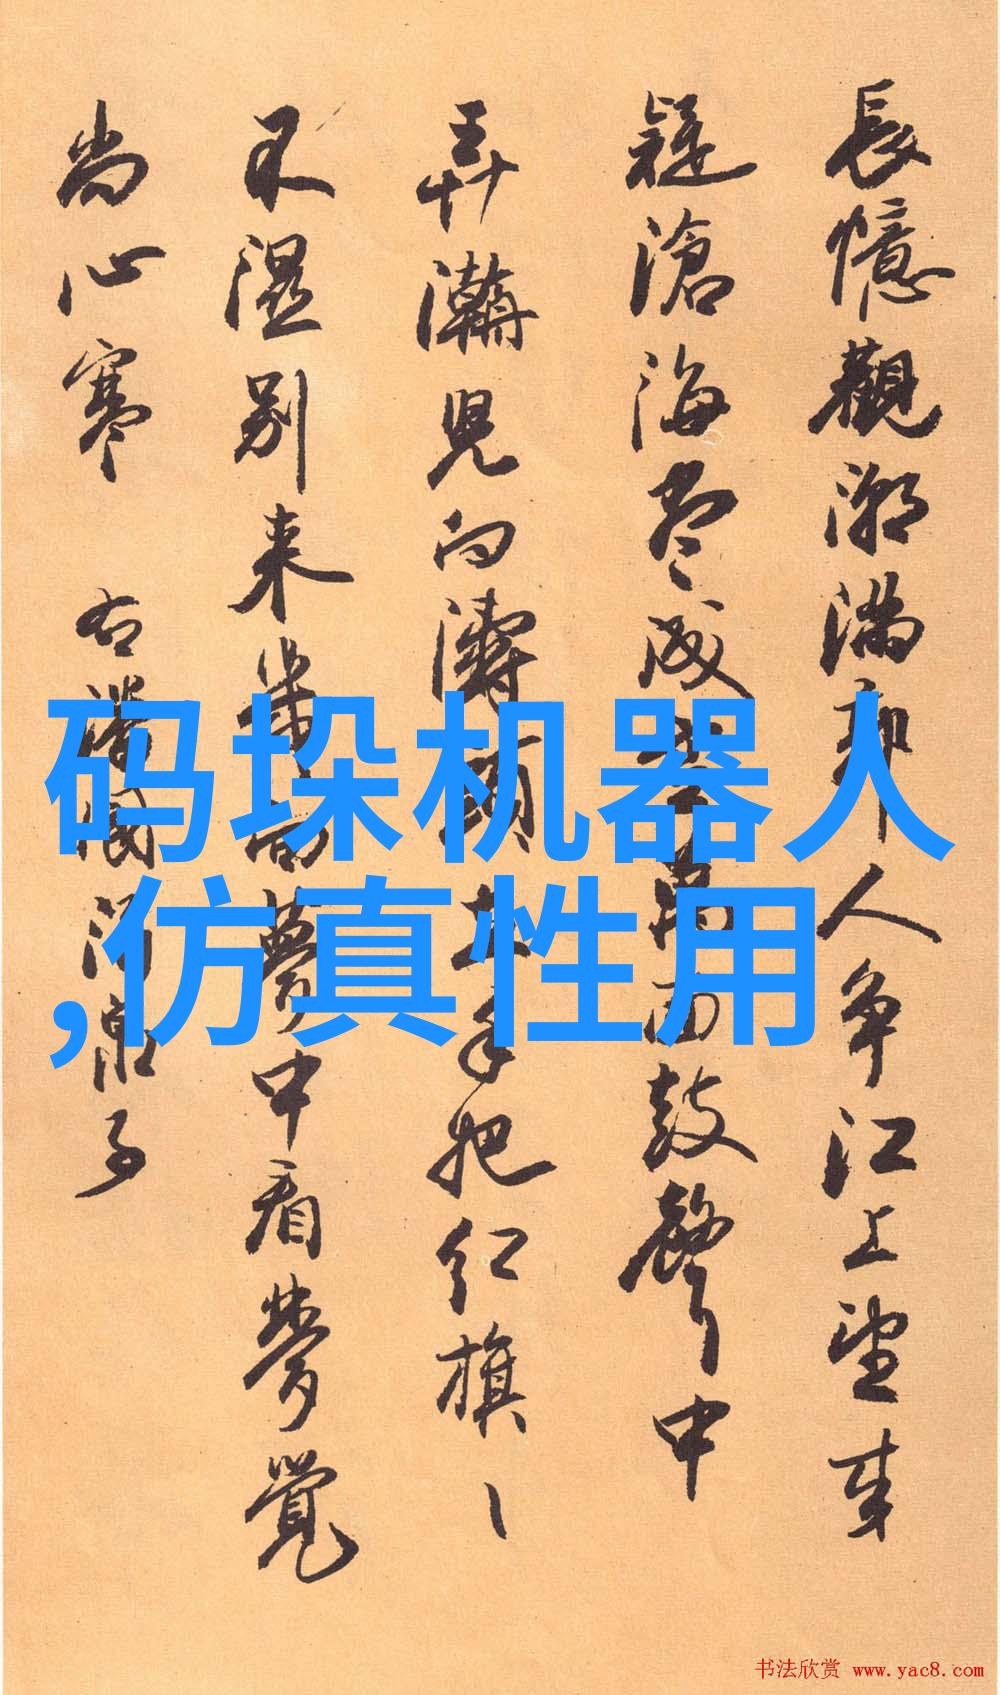 長憶觀潮滿郭人爭江上望来
疑滄海盡成空萬面鼓聲中
弄濤兒向濤頭立手把紅旗旗
不濕别来幾向夢中看夢覺
尚心寒 右潘閬酒泉子
码垛机器人
,仿真性用
书法欣赏 www.yac8.com